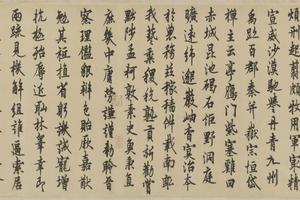 煩刑起翦頗牧用軍最精
宣威沙漠馳譽丹青九州
禹跡百郡秦并嶽宗恒岱
禪主云亭鴈門紫塞雞田
赤城昆池碣石鉅野洞庭
曠遠綿邈巖岫杳冥治本
於農務茲稼穡俶載南畝
我藝黍稷稅熟貢新勸賞
黜陟孟軻敦素史魚秉直
庶幾中庸勞謙謹敕聆音
察理鑑貌辨色貽厥嘉猷
勉其祗植省躬譏誡寵增
抗極殆辱近恥林皋幸即
兩疏見機解組誰逼索居